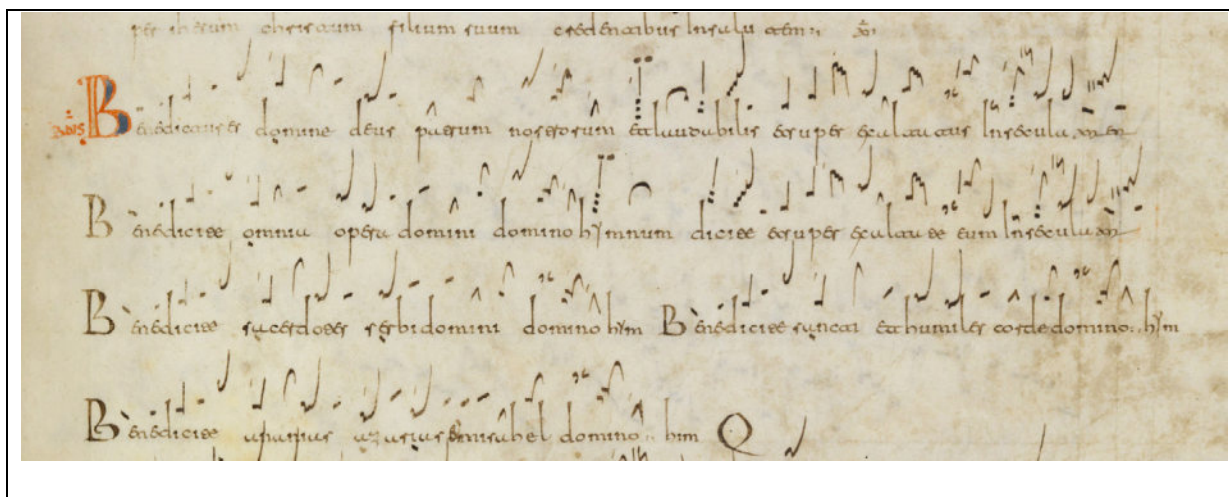 per ihesum christum filium suum credentibus In salutem
Benedictus es domine deus patrum nostrorum et laudabilis et super exaltatus In secula
Benedicite omnia opera domini domino hymnum dicite et super exaltate eum In secula
Benedicite sacerdotes serbi domini domino hym Benedicite sancti et humiles corde domino hym
Benedicite ananias azarias misahel domino him Q